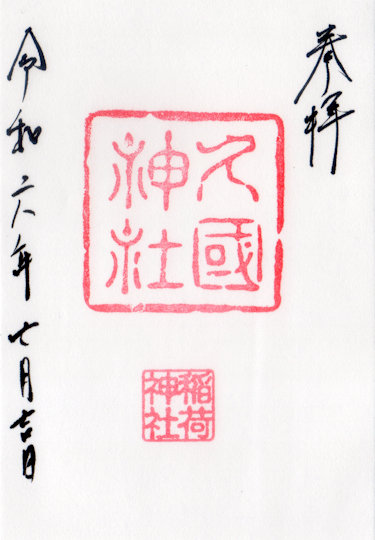 奉拝
久國
神社
稲荷
神社
令和六年七月吉日